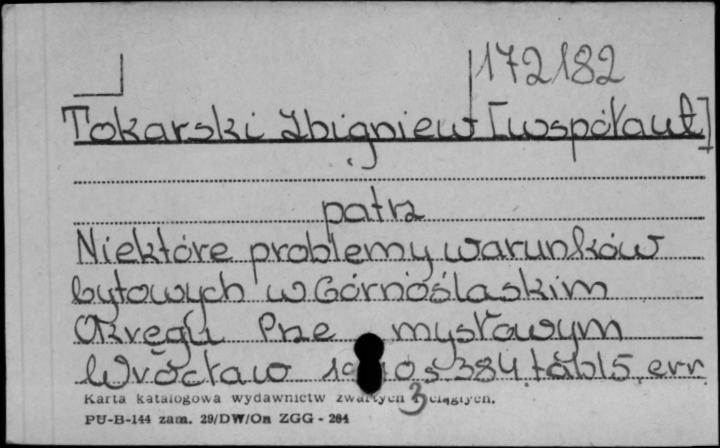 172182
Tokarski Zbigniew [współaut]
patrz
Niektóre problemy warunków
bytowych w Górnośląskim
Okręgu Prze mysłowym
Wrocław 19 10 s 384. tabl 5. err
3
Karta katalogowa wydawnictw zwartych ciągłych.
PU-B-144 zam. 29/DW/On ZGG - 264